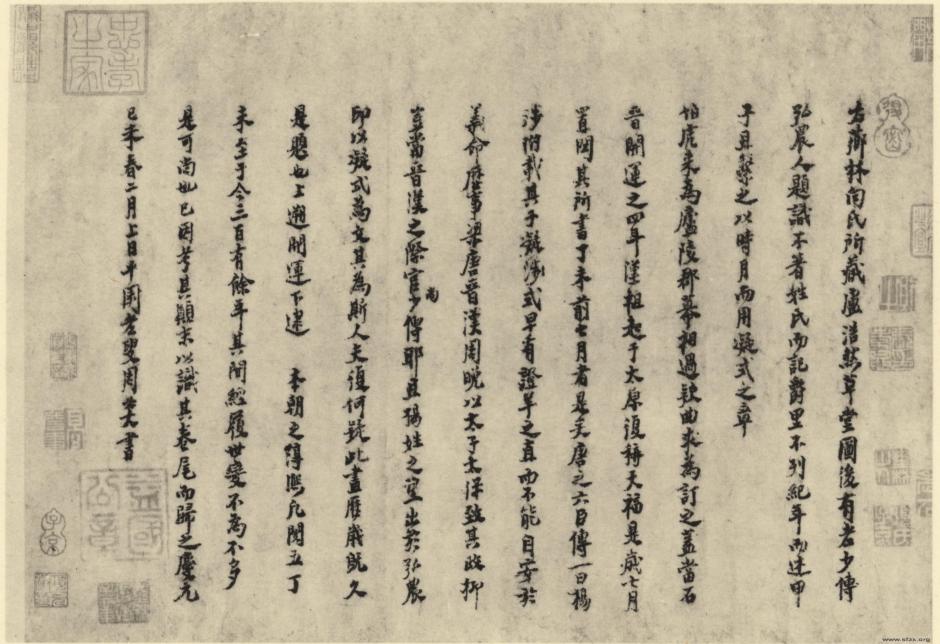 右薌林向氏所藏盧浩然草堂圖後有老少傅
弘農人題識不著姓氏而記爵里不列紀年而述甲
子且繫之以時月而用凝式之章
伯虎來為廬陵郡幕相過款曲求為訂之蓋當石
晉開運之四年漢祖起于太原復稱天福是歲七月
置閏其所書丁未前七月者是矣唐之六臣傳一曰楊
涉附載其子凝涉式早有證羊之直而不能自安於
義命歷事梁唐晉漢周晚以太子太保致其政抑
豈當晉漢之際官尚少傅耶且楊姓之望出於弘農
印以凝式為文其為斯人夫復何疑此畫歷歲既久
是題也上遡開運下逮 本朝之淳熙凡閱五丁
未至于今三百有餘年其間經履世變不為不多
是可尚也已因考其顛末以識其卷尾而歸之慶元
己未春二月上日平園老叟周必大書
忠孝之家
益國公章
子京
www.sfzx.org